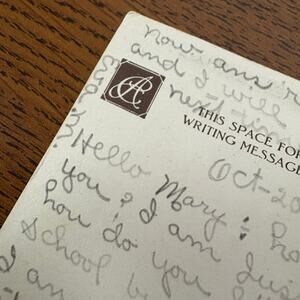 now ans
and I will
next time
THIS SPACE FOR
WRITING MESSAGE
Oct-20
Hello Mary: ho
you? I am jus
how do you
school b
I am